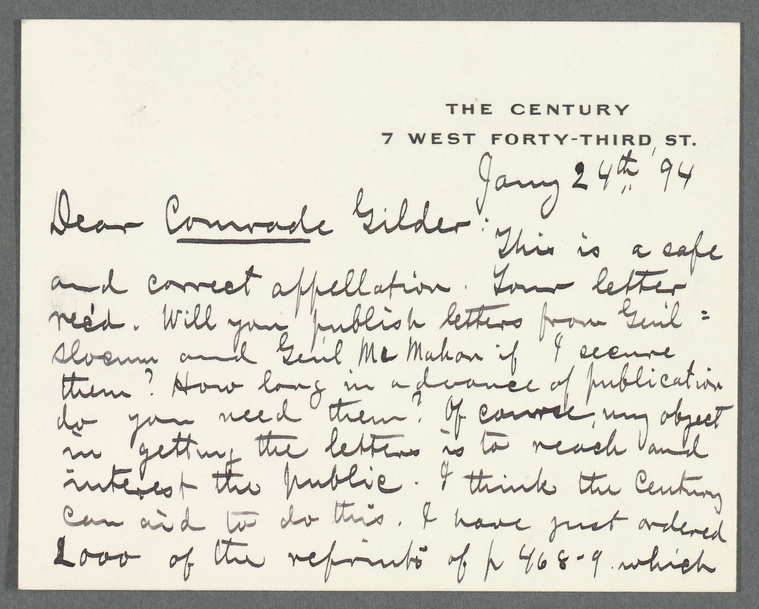 THE CENTURY
7 WEST FORTY-THIRD ST.
Jany 24th '94
Dear Comrade Gilder:
This is a safe
and correct appellation. Your letter
rec'd. Will you publish letters from Genl =
Slocum and Genl Mc Mahon if I secure
them? How long in advance of publication
do you need them? Of course, my object
in getting the letters is to reach and
interest the public. I think the Century
can aid to do this. I have just ordered
2000 of the reprints of p 468-9. which